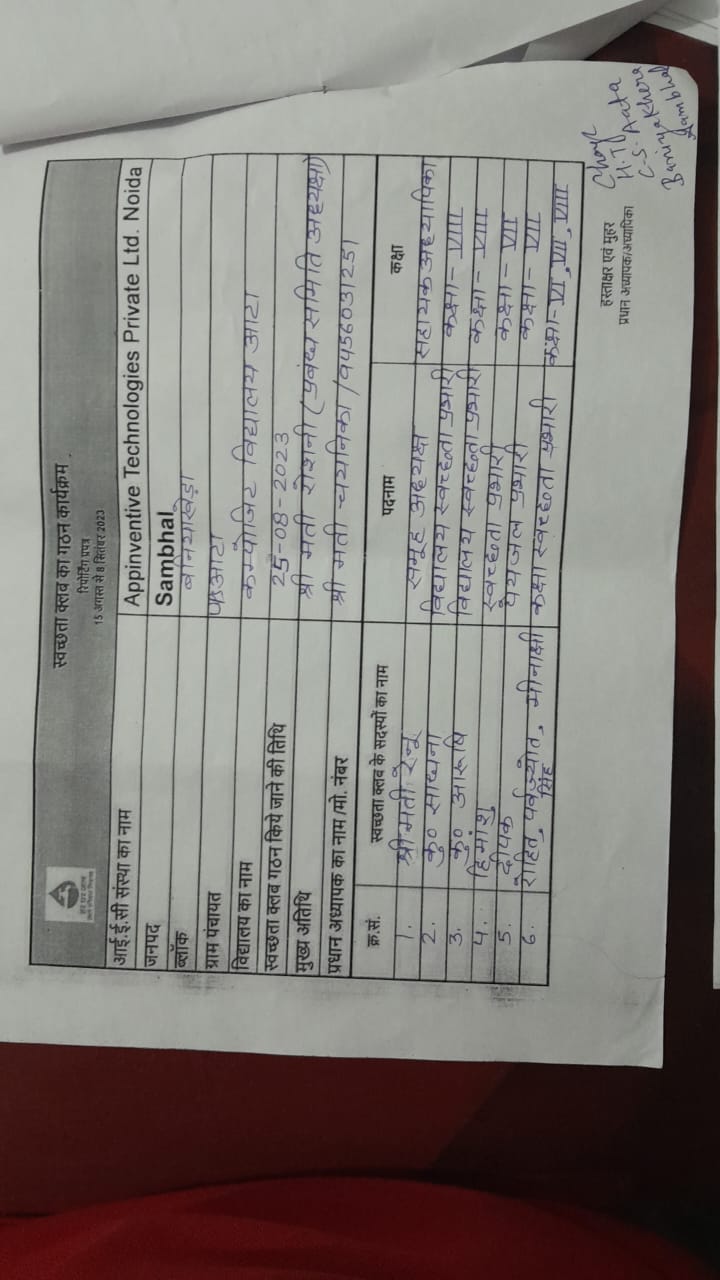 स्वच्छता क्लब का गठन कार्यक्रम
रिपोर्टिंग प्रपत्र
15 अगस्त से 8 सितंबर 2023
आई.ई.सी संस्था का नाम Appinventive Technologies Private Ltd. Noida
जनपद Sambhal
ब्लॉक बनियाखेड़ा
ग्राम पंचायत आटा
विद्यालय का नाम कम्पोजिट विद्यालय आटा
स्वच्छता क्लब गठन किये जाने की तिथि 25-08-2023
मुख्य अतिथि श्री मती रोशनी (प्रबंध समिति अध्यक्षा)
प्रधान अध्यापक का नाम /मो. नंबर श्री मती चयनिका /9456031251
क्र.सं. स्वच्छता क्लब के सदस्यों का नाम पदनाम कक्षा
1. श्री मती रेनू समूह अध्यक्ष सहायक अध्यापिका
2. कु० साधना विद्यालय स्वच्छता प्रभारी कक्षा - VIII
3. कु० आरुषि विद्यालय स्वच्छता प्रभारी कक्षा - VIII
4. हिमांशु स्वच्छता प्रभारी कक्षा - VII
5. दीपक पेयजल प्रभारी कक्षा - VII
6. रोहित, सिंह, मीनाक्षी कक्षा स्वच्छता प्रभारी कक्षा - VI, VII, VIII
हस्ताक्षर एवं मुहर
प्रधान अध्यापक/अध्यापिका
H.T.
C.S. Aata
Baniyakhera
Sambhal